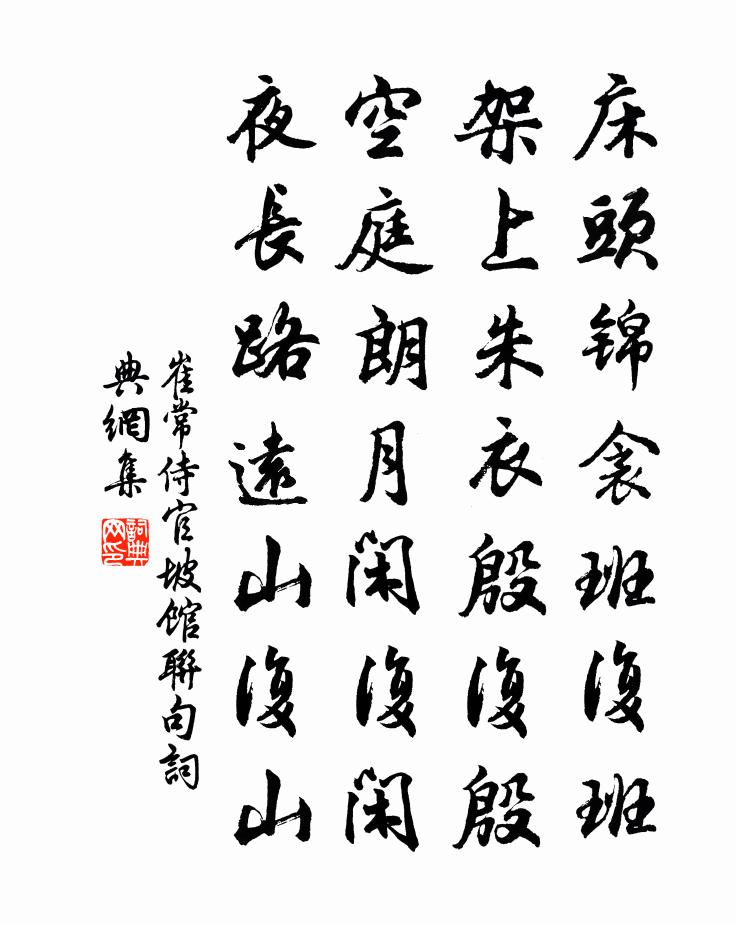 床頭錦衾班復班
架上朱衣殷復殷
空庭朗月閑復閑
夜長路遠山復山
崔常侍官坡館聯句詞
典網集
詞典
网印